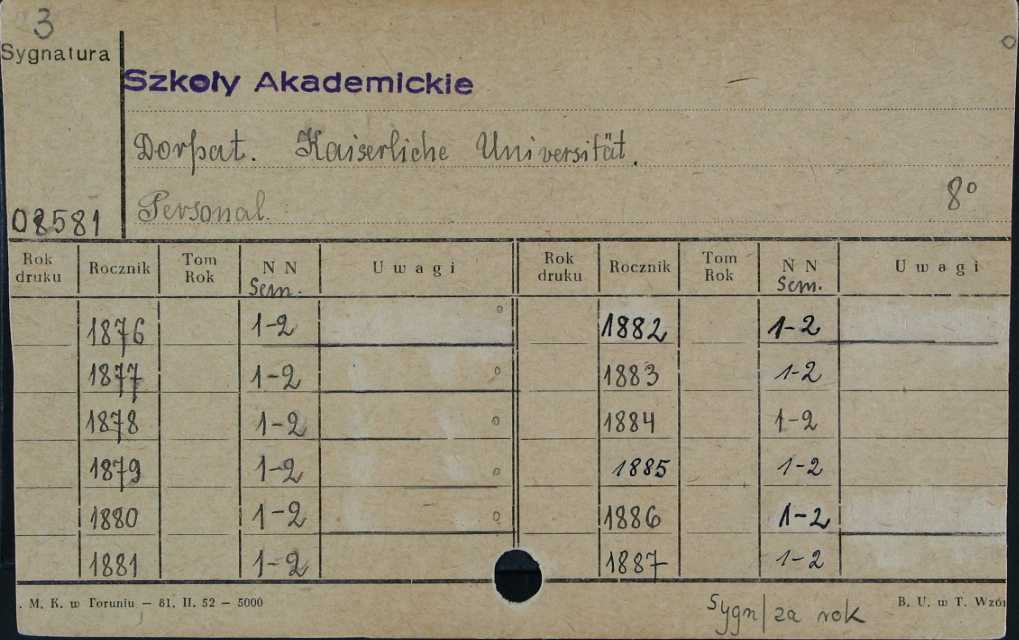 3
Sygnatura
Szkoły Akademickie
Dorpat. Kaiserliche Universität.
Personal.
8°
08581
Rok druku Rocznik Tom Rok N N Sem. Uwagi Rok druku Rocznik Tom Rok N N Sem. Uwagi
1876 1-2 1882 1-2
1877 1-2 1883 1-2
1878 1-2 1884 1-2
1879 1-2 1885 1-2
1880 1-2 1886 1-2
1881 1-2 1887 1-2
. M. K. w Toruniu — 81. II. 52 — 5000
Sygn/za rok
B. U. w T. Wzór